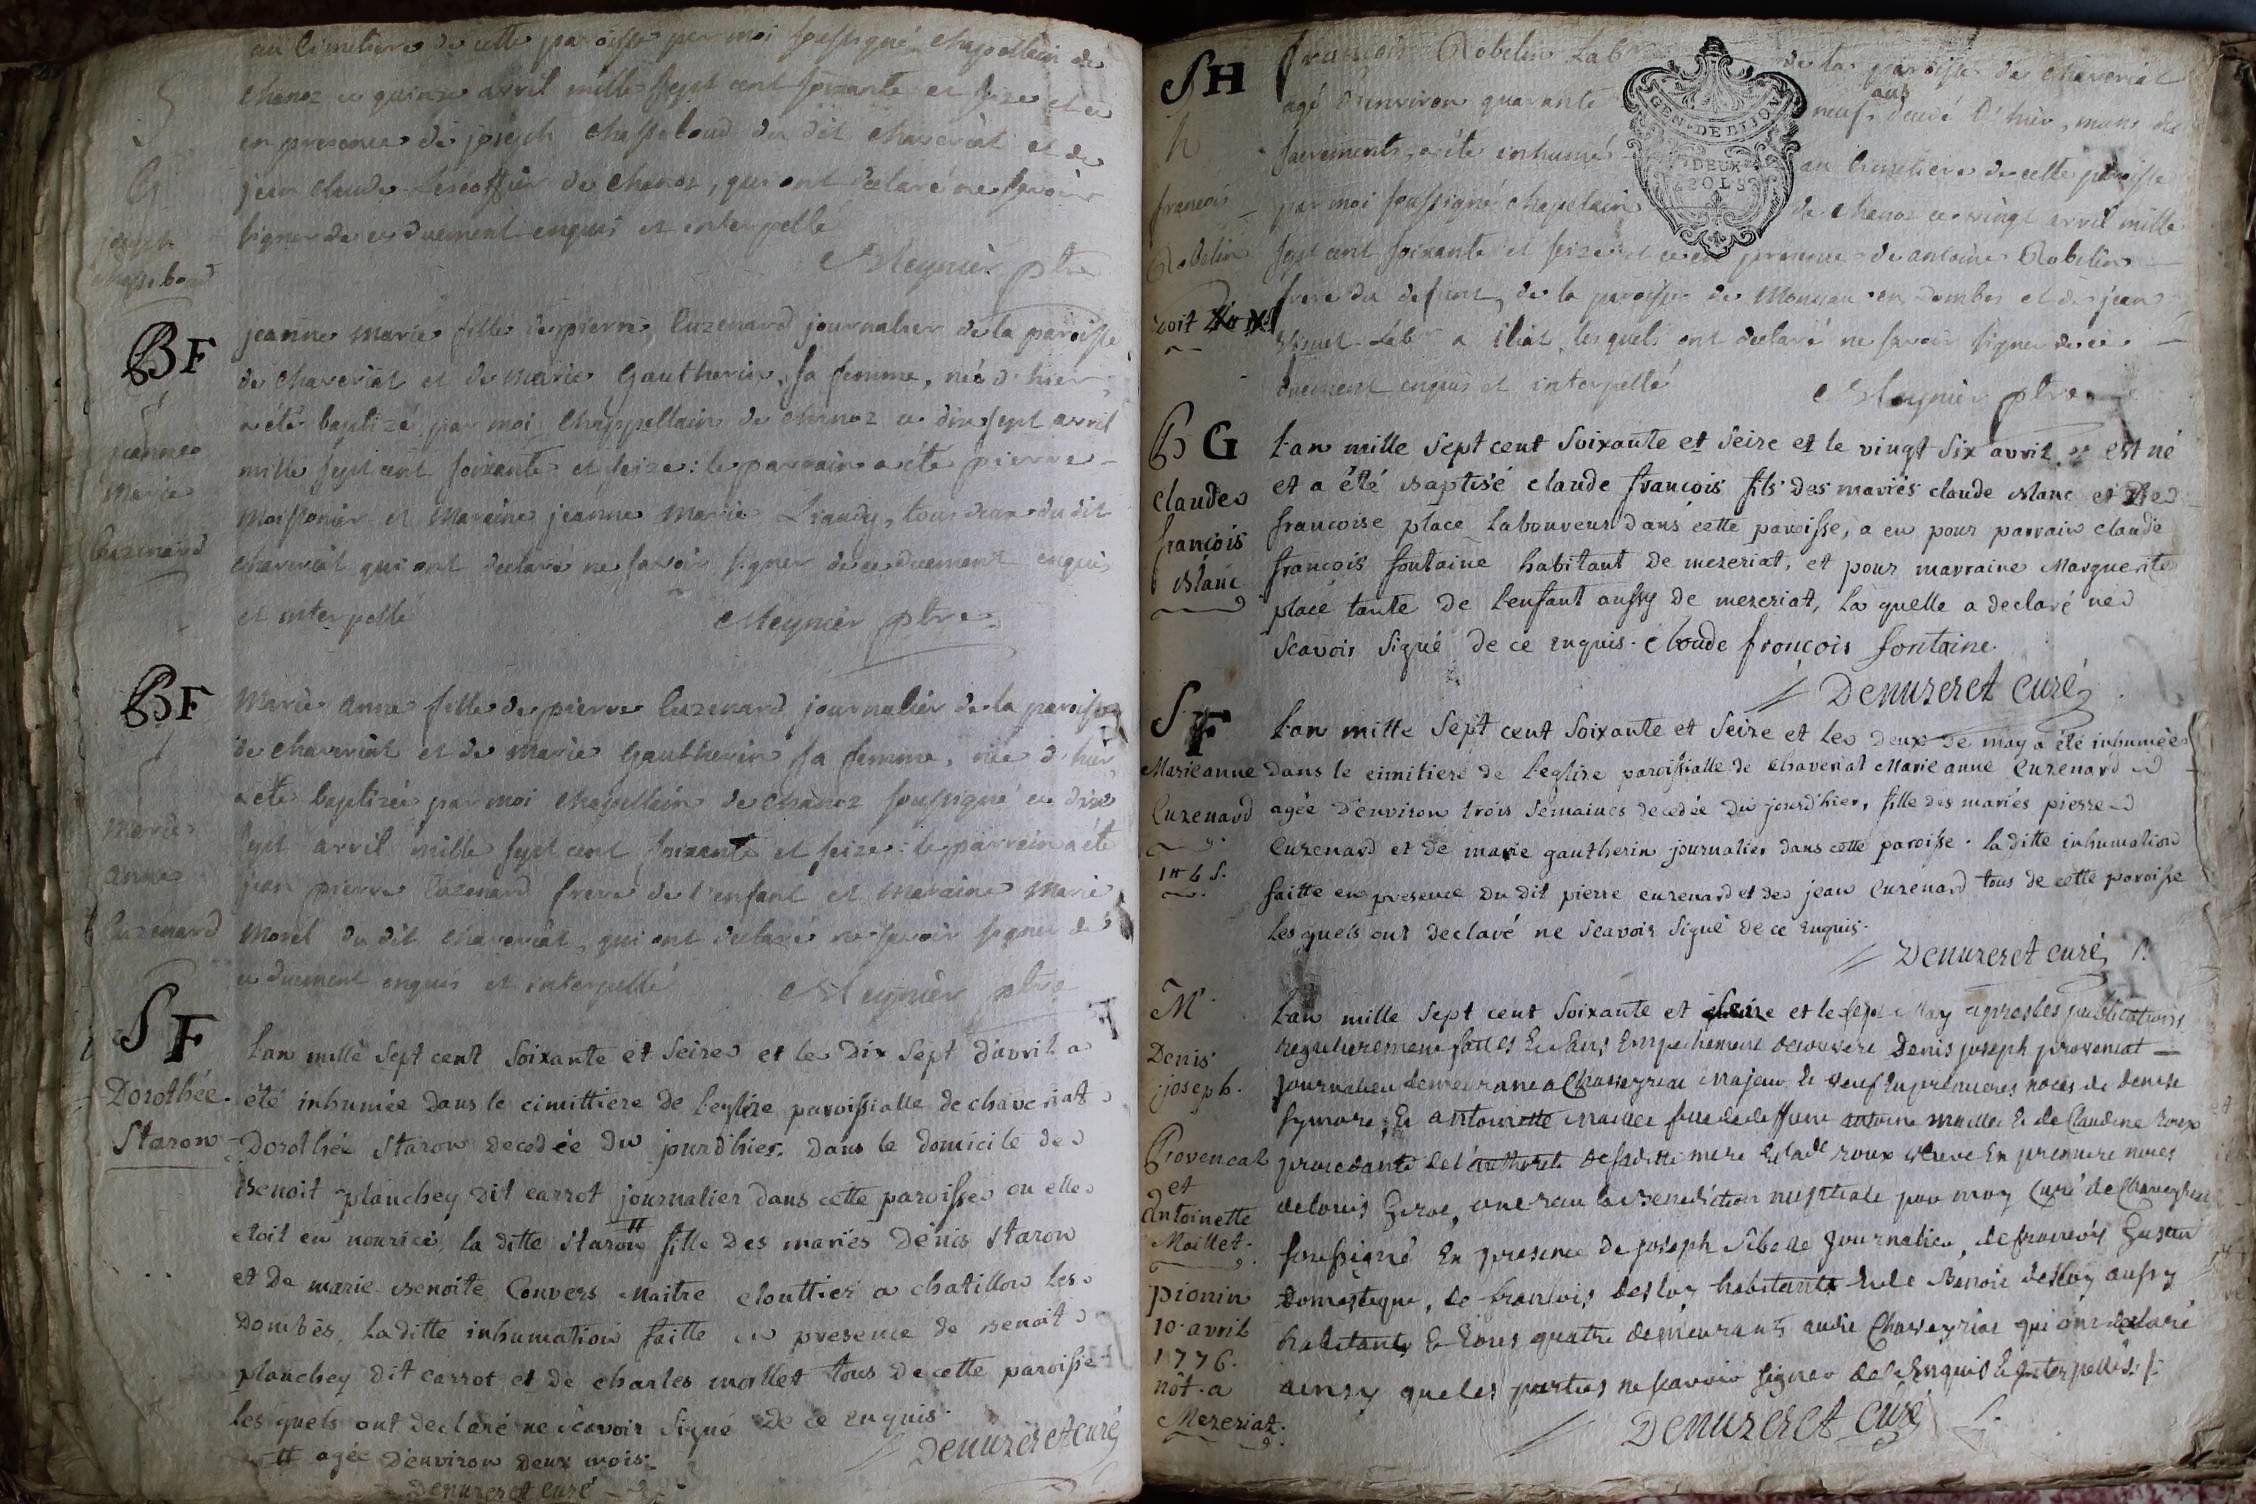 au Cimetiere de cette paroisse par moi soussigné chapellain de
chanoz ce quinze avril mille sept cent soixante et seize et ce
en presence de joseph chasseboud du dit chaveriat et de
jean claude Lescoffier de chanoz, qui ont declaré ne savoir
signer de ce duement enquis et interpellé
Meynier ptre
S
G
joseph
chasseboud
BF
jeanne
Marie
Cuzenard
jeanne Marie fille de pierre Cuzenard journalier de la paroisse
de chaveriat et de marie Gautherin, sa femme, née d'hier
a été baptizé par moi Chappellain de chanoz ce dix sept avril
mille sept cent soixante et seize : le parrain a été pierre
Moissonier et Maraine jeanne Marie Liaudy, tous deux du dit
chaveriat qui ont declaré ne savoir signer de ce duement enquis
et interpellé
Meynier ptre
BF
Marie
anne
Cuzenard
Marie anne fille de pierre Cuzenard journalier de la paroisse
de chaveriat et de Marie Gautherin sa femme, née d'hier
a été baptizée par moi chapellain de chanoz soussigné ce dix
sept avril mille sept cent soixante et seize : le parrein a été
jean pierre Cuzenard frere de l'enfant et Maraine Marie
Morel du dit chaveriat, qui ont declaré ne savoir signer de
ce duement enquis et interpellé
Meynier ptre
SF
Dorothée
Staron
L'an mille Sept cent Soixante et Seize et le Dix Sept d'avril a
été inhumée dans le cimittiere de l'eglise paroissialle de chaveriat
Dorothée Staron decedée du jourd'hier. Dans le domicile de
Benoit planchey dit carrot journalier dans cette paroisse ou elle
etoit en nourice, la ditte Staron # fille Des mariés Dénis Staron
et De marie Benoite Convers Maitre clouttier a chatillon les
Dombes, La ditte inhumation faitte en presence de Benoit
planchey dit carrot et de charles mollet tous de cette paroisse
les quels ont declaré ne scavoir Signé De ce enquis.
# agée D'environ Deux mois.
Denuzeret curé
Denuzeret curé
SH
h
francois
Robelin
francois Robelin Lab de la paroisse de chaveriat
agé d'environ quarante neuf ans decedé d'hier, muni des
sacrements, a été inhumé au Cimetiere de cette paroisse
par moi soussigné chapelain de chanoz ce vingt avril mille
sept cent soixante et seize et ce en presence de antoine Robelin
frere du defunt, de la paroisse de Monceau en Dombes et de jean
Lab a Iliat, lesquels ont declaré ne savoir signer de ce
duement enquis et interpellé
Meynier ptre
GEN. DE DIJON
DEUX
SOLS
BG
claude
françois
Blanc
L'an mille Sept cent Soixante et Seize et le vingt Six avril est né
et a été Baptisé claude françois fils des mariés claude Blanc et de
francoise place Laboureur dans cette paroisse, a eu pour parrain claude
françois fontaine habitant de mezeriat, et pour marraine Marguerite
place tante de l'enfant aussy de mezeriat, la quelle a declaré ne
Scavoir Signé de ce enquis. Cloude françois fontaine
Denuzeret curé
SF
Marie anne
Cuzenard
L'an mille Sept cent Soixante et Seize et le deux de may a été inhumée
dans le cimitiere de l'eglise paroissialle de chaveriat Marie anne Cuzenard
agée d'environ trois Semaines decedée du jourd'hier, fille des mariés pierre
Cuzenard et de marie gautherin journalier dans cette paroisse. la ditte inhumation
faitte en presence du dit pierre cuzenard et de jean Cuzenard tous de cette paroisse
les quels ont declaré ne Scavoir Signé de ce enquis.
Denuzeret curé
M
Denis
joseph
Provencal
et
Antoinette
Maillet
pionin
10 avril
1776.
nôt. a
Mezeriat.
L'an mille Sept cent Soixante et Seize et le sept May apres les publications
regulierement faittes et Sans Empechement decouvert Denis joseph provencat
Journalier demeurant a Chaveyriat Majeur et veuf en premieres noces de denise
, et antoinette maillet fille de deffunt antoine maillet et de Claudine Roux
procedante de l'authorité de sa ditte mere et la de roux veuve En premiere noces
de louis , ont recu la Benediction nuptiale par moy Curé de Chaveyriat
soussigné En presence de joseph journalier, de francois
Domestique, de francois desloy habitant et de Benoit desloy aussy
habitant, et tous quatre demeurants audit Chaveyriat qui ont declaré
ainsy que les parties ne scavoir signer de ce Enquis et interpellés
Denuzeret curé